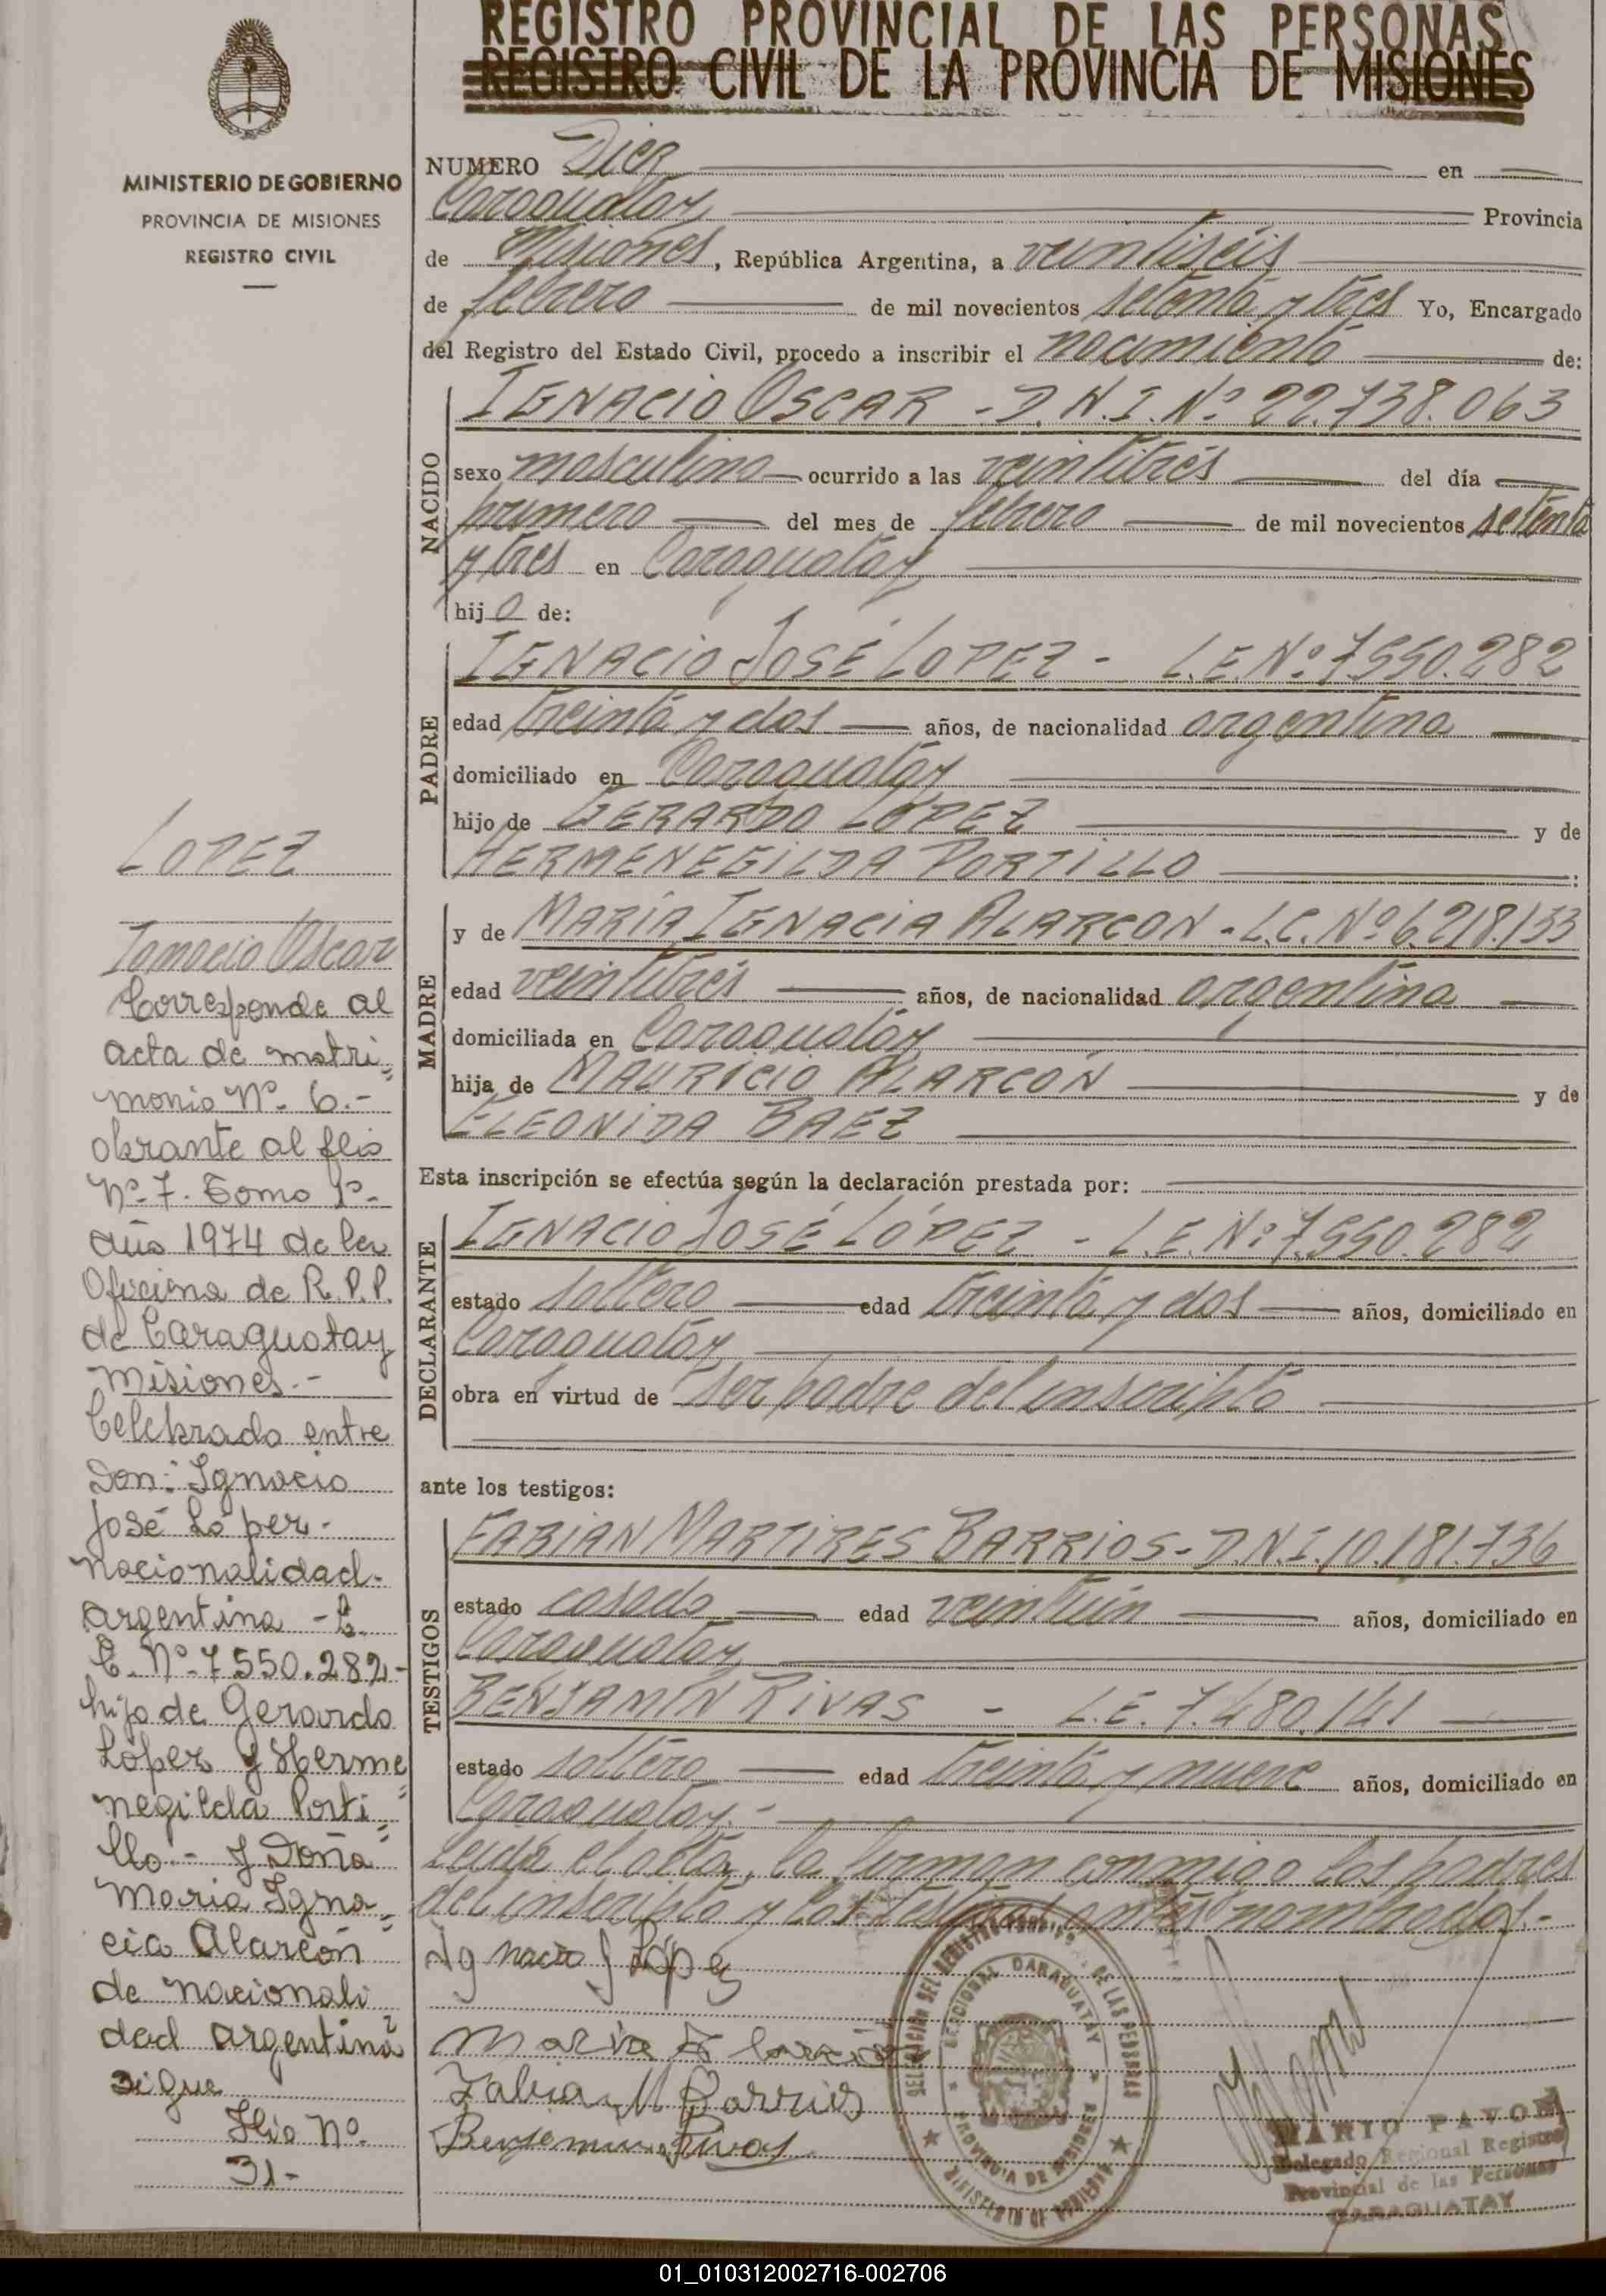 REGISTRO PROVINCIAL DE LAS PERSONAS
REGISTRO CIVIL DE LA PROVINCIA DE MISIONES
MINISTERIO DE GOBIERNO
PROVINCIA DE MISIONES
REGISTRO CIVIL
LOPEZ
Ignacio Oscar
Corresponde al
acta de matri=
monio Nº. 6.-
obrante al flio
Nº-7. Tomo 1º-
año 1974 de la
Oficina de R.P.P.
de Caraguatay
Misiones.-
Celebrado entre
Don: Ignacio
José López.-
Nacionalidad-
argentina -L.
E. Nº-7550.282-
hijo de Gerardo
López y Herme=
negilda Porti=
llo.- y Doña
Maria Igna=
cia Alarcón
de nacionali
dad argentina
sigue
flio Nº.
31-
NUMERO Diez en
Caraguatay Provincia
de Misiones, República Argentina, a veintiséis
de febrero de mil novecientos setenta y tres Yo, Encargado
del Registro del Estado Civil, procedo a inscribir el nacimiento de:
NACIDO
IGNACIO OSCAR - D.N.I. Nº 22.738.063
sexo masculino ocurrido a las veintitrés del día
primero del mes de febrero de mil novecientos setenta
y tres en Caraguatáy
hijo de:
PADRE
IGNACIO JOSÉ LOPEZ - L.E. Nº 7.550.282
edad treinta y dos años, de nacionalidad argentina
domiciliado en Caraguatáy
hijo de GERARDO LOPEZ y de
HERMENEGILDA PORTILLO ;
MADRE
y de MARÍA IGNACIA ALARCON - L.C. Nº 6.218.133
edad veintitrés años, de nacionalidad argentina
domiciliada en Caraguatáy
hija de MAURICIO ALARCON y de
ELEONIDA BAEZ
Esta inscripción se efectúa según la declaración prestada por:
DECLARANTE
IGNACIO JOSÉ LÓPEZ - L.E. Nº 7.550.282
estado soltero edad treinta y dos años, domiciliado en
Caraguatáy
obra en virtud de ser padre del inscripto
ante los testigos:
TESTIGOS
FABIAN MARTIRES BARRIOS - D.N.I. 10.181.736
estado casado edad veintiún años, domiciliado en
Caraguatay
BENJAMÍN RIVAS - L.E. 7.480.141
estado soltero edad treinta y nueve años, domiciliado en
Caraguatay.-
Leída el acta, la firman conmigo los padres
del inscripto y los testigos antes nombrados.-
Ignacio J López
Maria I Alarcón
Fabian M Barrios
Benjamin Rivas
SECCIONAL CARAGUATAY
PROVINCIA DE MISIONES
MINISTERIO DE GOBIERNO
MARIO PAVON
Delegado Regional Registro
Provincial de las Personas
CARAGUATAY
01_010312002716-002706